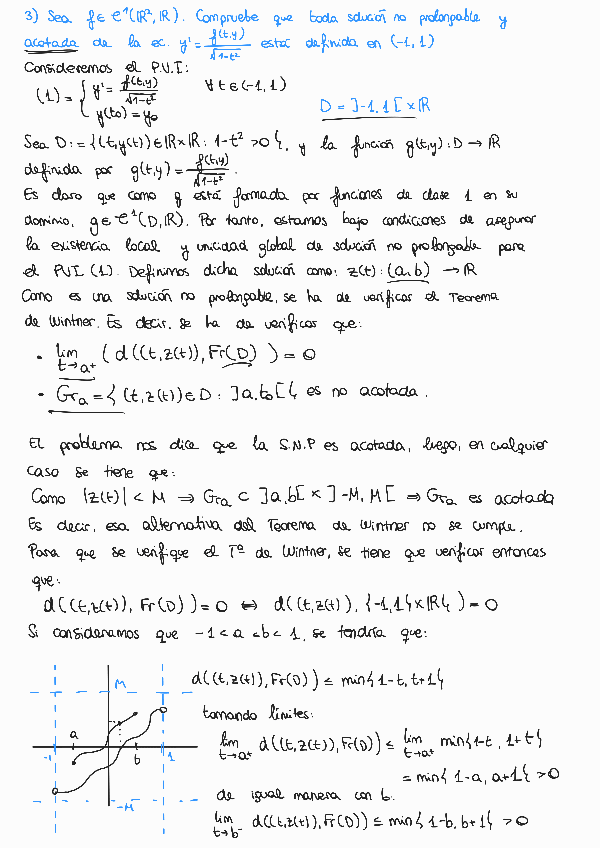 3) Sea f ∈ C¹(ℝ², ℝ). Compruebe que toda solución no prolongable y
acotada de la ec. y' = f(t,y)/√1-t² está definida en (-1,1)
Consideremos el P.V.I:
(1) = { y' = f(t,y)/√1-t² ∀t ∈ (-1,1)
y(t₀) = y₀
D = ]-1,1[ × ℝ
Sea D := {(t,y(t)) ∈ ℝ×ℝ : 1-t² > 0}, y la función g(t,y): D → ℝ
definida por g(t,y) = f(t,y)/√1-t².
Es claro que como g está formada por funciones de clase 1 en su
dominio, g ∈ C¹(D,ℝ). Por tanto, estamos bajo condiciones de asegurar
la existencia local y unicidad global de solución no prolongable para
el PVI (1). Definimos dicha solución como: z(t): (a,b) → ℝ
Como es una solución no prolongable, se ha de verificar el Teorema
de Wintner. Es decir, se ha de verificar que:
• lim t→a⁺ (d((t,z(t)), Fr(D))) = 0
• Gra = {(t,z(t)) ∈ D : ]a,t₀[} es no acotada.
El problema nos dice que la S.N.P es acotada, luego, en cualquier
caso se tiene que:
Como |z(t)| < M ⇒ Gra ⊂ ]a,b[ × ]-M,M[ ⇒ Gra es acotada
Es decir, esa alternativa del Teorema de Wintner no se cumple.
Para que se verifique el Tº de Wintner, se tiene que verificar entonces
que:
d((t,z(t)), Fr(D)) = 0 ↔ d((t,z(t)), {-1,1}×ℝ}) = 0
Si consideramos que -1 < a < b < 1, se tendría que:
M
a
-1
b
1
-M
d((t,z(t)), Fr(D)) ≤ min{1-t, t+1}
tomando límites:
lim t→a⁺ d((t,z(t)), Fr(D)) ≤ lim t→a⁺ min{1-t, 1+t}
= min{1-a, a+1} > 0
de igual manera con b.
lim t→b⁻ d((t,z(t)), Fr(D)) ≤ min{1-b, b+1} > 0